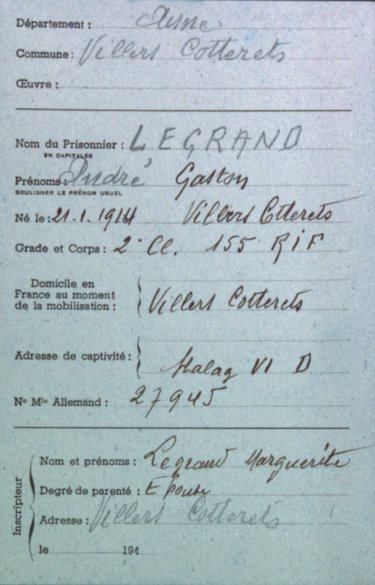 Département : Aisne.
Commune : Villers Cotterets
Œuvre :
Nom du Prisonnier : LEGRAND
EN CAPITALES
Prénoms : André Gaston
SOULIGNER LE PRÉNOM USUEL
Né le : 21.1.1914 Villers Cotterets
Grade et Corps : 2e Cl. 155 RIF
Domicile en
France au moment
de la mobilisation : Villers Cotterets
Adresse de captivité : Stalag VI D
No Mle Allemand : 27945
Inscripteur
Nom et prénoms : Legrand Marguerite
Degré de parenté : Epouse
Adresse : Villers Cotterets
le 194